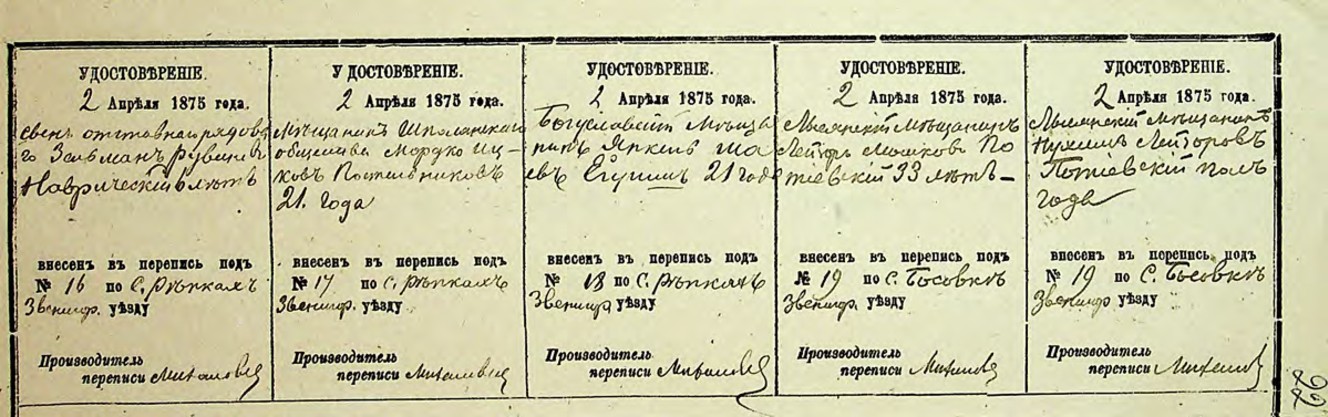 УДОСТОВѢРЕНІЕ.
2 Апрѣля 1875 года.
сынъ отставнаго рядова
го Зельманъ Рувиновъ
6 лѣтъ
внесенъ въ перепись подъ
№ 16 по С. Рѣпкахъ
Звениг. уѣзду
Производитель
переписи
УДОСТОВѢРЕНІЕ.
2 Апрѣля 1875 года.
Мѣщанинъ Шполянскаго
общества Мордко Иц-
ковъ Постельниковъ
21. года
внесенъ въ перепись подъ
№ 17 по С. Рѣпкахъ
Звениг. уѣзду
Производитель
переписи
УДОСТОВѢРЕНІЕ.
2 Апрѣля 1875 года.
Богуславскій Мѣща
нинъ Янкель
21 года
внесенъ въ перепись подъ
№ 18 по С. Рѣпкахъ
Звениг. уѣзду
Производитель
переписи
УДОСТОВѢРЕНІЕ.
2 Апрѣля 1875 года.
Лысянскій Мѣщанинъ
Лейзоръ Мошковъ По
тіевскій 33 лѣтъ
внесенъ въ перепись подъ
№ 19 по С. Босовкѣ
Звениг. уѣзду
Производитель
переписи
УДОСТОВѢРЕНІЕ.
2 Апрѣля 1875 года.
Лысянскій Мѣщанинъ
Нухимъ Лейзоровъ
Потіевскій полъ
года
внесенъ въ перепись подъ
№ 19 по С. Босовкѣ
Звениг. уѣзду
Производитель
переписи
22